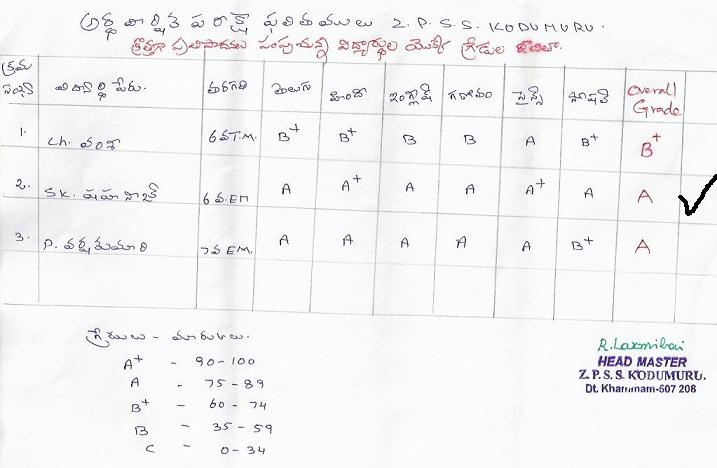 అర్ధ వార్షిక పరీక్ష ఫలితములు Z.P.S.S. KODUMURU.
క్రొత్తగా ప్రతిపాదనలు పంపుచున్న విద్యార్థుల యొక్క గ్రేడుల జాబితా.
క్రమ సంఖ్య విద్యార్థి పేరు. తరగతి తెలుగు హిందీ ఇంగ్లీష్ గణితం సైన్స్ సోషల్ Overall Grade
1. Ch. వంశీ 6వ T.M. B+ B+ B B A B+ B+
2. SK. షహనాజ్ 6వ.EM A A+ A A A+ A A
3. P. వర్ష కుమారి 7వ EM. A A A A A B+ A
గ్రేడులు - మార్కులు.
A+ - 90-100
A - 75-89
B+ - 60-74
B - 35-59
C - 0-34
R. Laxmibai
HEAD MASTER
Z. P. S. S. KODUMURU.
Dt. Khammam-507 208